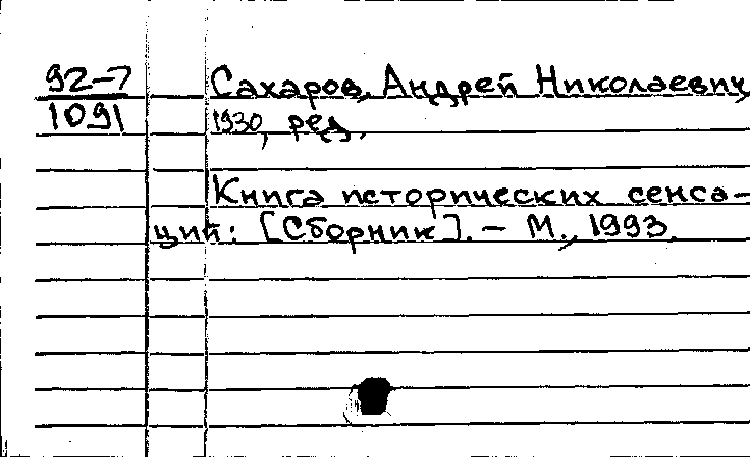 92-7 Сахаров, Андрей Николаевич,
1091 1930, ред.
Книга исторических сенса-
ций: [Сборник]. - М., 1993.